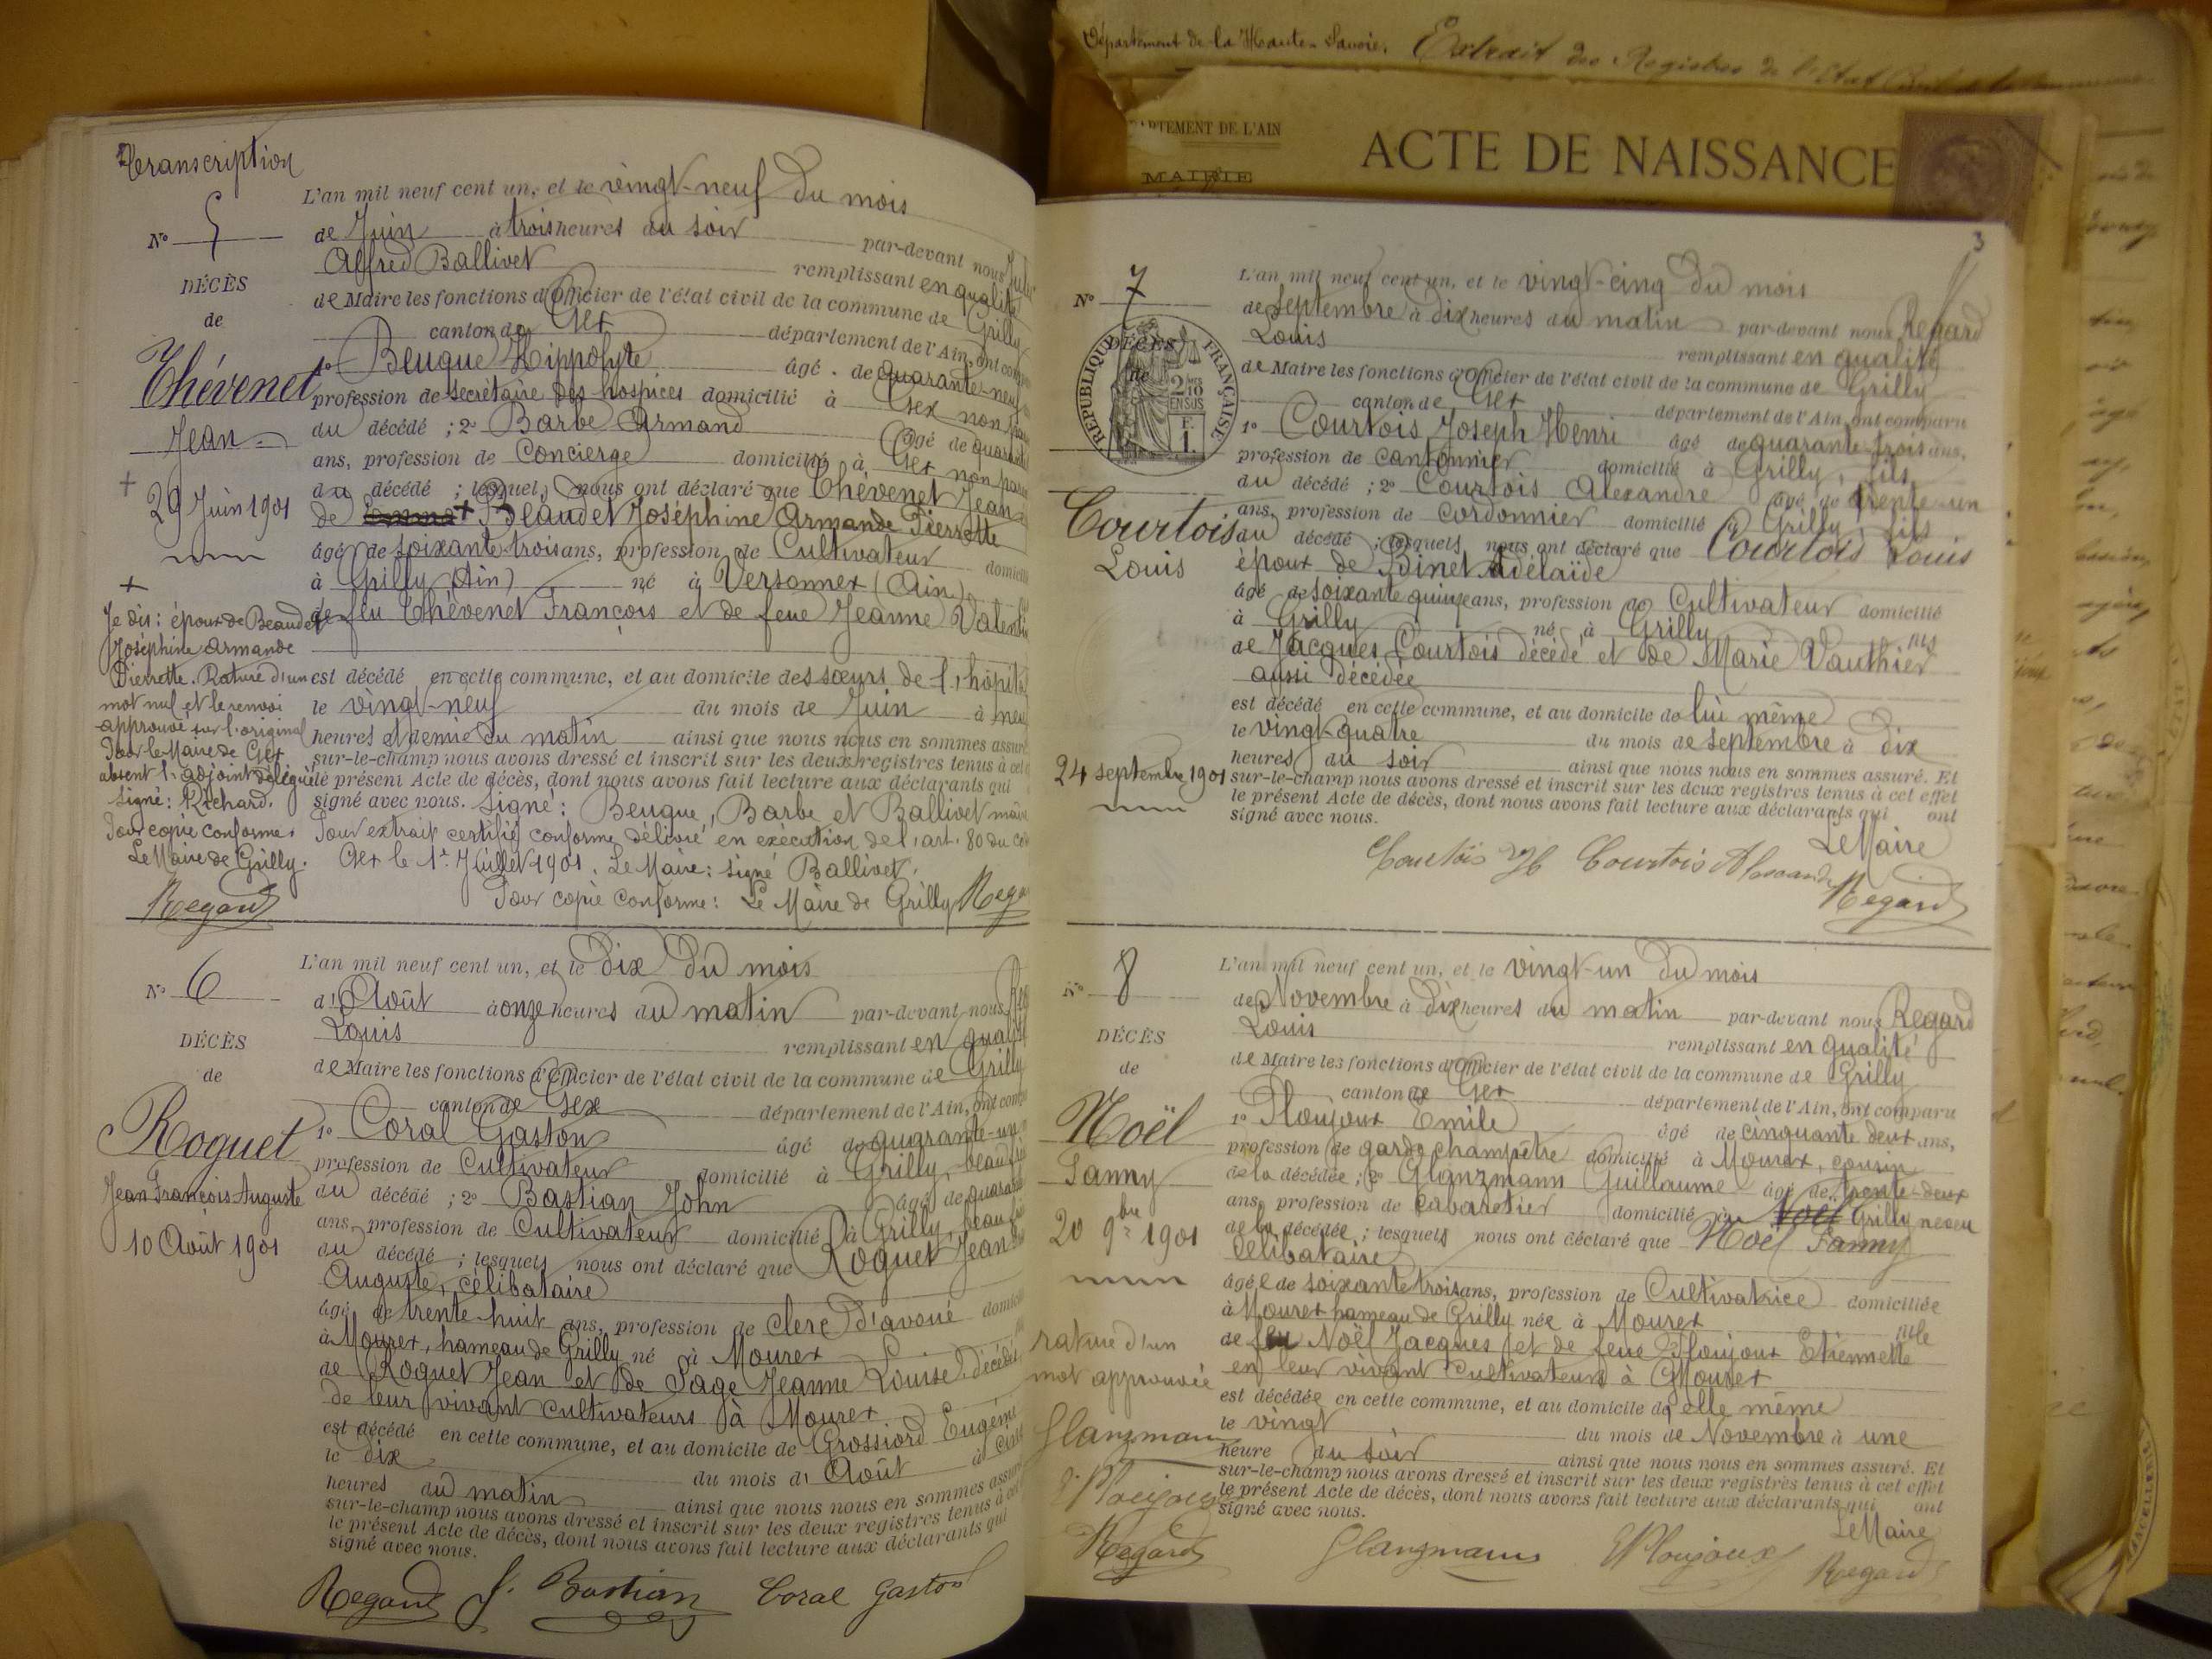 Département de la Haute-Savoie. Extrait des Registres de l'État Civil de la
DÉPARTEMENT DE L'AIN
ACTE DE NAISSANCE
MAIRIE
Transcription
N° 5
DÉCÈS
de
Thévenet
Jean
+
29 Juin 1901
+
Je dis : époux de Beaudet
Joséphine Armande
Pierrette. Rature d'un
mot nul et le renvoi
approuvé sur l'original
Pour le Maire de Gex
absent l'adjoint délégué
Signé : Richard.
Pour copie conforme,
Le Maire de Grilly.
Regard
L'an mil neuf cent un, et le vingt-neuf du mois
de Juin à trois heures du soir par-devant nous
Alfred Ballivet remplissant en qualité
de Maire les fonctions d'Officier de l'état civil de la commune de Grilly
canton de Gex département de l'Ain, ont
1° Beuque Hippolyte âgé de quarante-neuf
profession de secrétaire des hospices domicilié à Gex non
du décédé ; 2° Barbe Armand âgé de
ans, profession de Concierge domicilié à Gex non
du décédé ; lesquels nous ont déclaré que Thévenet Jean
de + Beaudet Joséphine Armande Pierrette
âgé de soixante-trois ans, profession de Cultivateur
à Grilly (Ain) né à Versonnex (Ain)
de feu Thévenet François et de feue Jeanne
est décédé en cette commune, et au domicile des sœurs de l'hôpital
le vingt-neuf du mois de Juin à neuf
heures et demie du matin ainsi que nous nous en sommes assuré
sur-le-champ nous avons dressé et inscrit sur les deux registres tenus à cet
le présent Acte de décès, dont nous avons fait lecture aux déclarants qui
signé avec nous. Signé : Beuque, Barbe et Ballivet maire
Pour extrait certifié conforme délivré en exécution de l'art. 80 du
Gex le 1er Juillet 1901. Le Maire : signé Ballivet.
Pour copie conforme : Le Maire de Grilly
N° 6
DÉCÈS
de
Roguet
Jean François Auguste
10 Août 1901
L'an mil neuf cent un, et le dix du mois
d'Août à onze heures du matin par-devant nous
Louis remplissant en
de Maire les fonctions d'Officier de l'état civil de la commune de Grilly
canton de Gex département de l'Ain, ont
1° Coral Gaston âgé de quarante-un
profession de Cultivateur domicilié à Grilly,
du décédé ; 2° Bastian John âgé de
ans, profession de Cultivateur domicilié à Grilly,
du décédé ; lesquels nous ont déclaré que Roguet Jean
Auguste, célibataire
âgé de trente-huit ans, profession de clerc d'avoué
à Mourex, hameau de Grilly né à Mourex
de Roguet Jean et de Sage Jeanne Louise,
de leur vivant cultivateurs à Mourex
est décédé en cette commune, et au domicile de Grossiord
le dix du mois d'Août à
heures du matin ainsi que nous nous en sommes
sur-le-champ nous avons dressé et inscrit sur les deux registres tenus à
le présent Acte de décès, dont nous avons fait lecture aux déclarants qui
signé avec nous.
Regard J. Bastian Coral Gaston
3
N° 7
DÉCÈS
de
RÉPUBLIQUE FRANÇAISE
2/10 EN SUS
F. 1
Courtois
Louis
24 septembre 1901
L'an mil neuf cent un, et le vingt-cinq du mois
de septembre à dix heures du matin par-devant nous Regard
Louis remplissant en qualité
de Maire les fonctions d'Officier de l'état civil de la commune de Grilly
canton de Gex département de l'Ain, ont comparu
1° Courtois Joseph Henri âgé de quarante-trois ans,
profession de cantonnier domicilié à Grilly, fils
du décédé ; 2° Courtois Alexandre âgé de trente-un
ans, profession de cordonnier domicilié à Grilly, fils
du décédé ; lesquels nous ont déclaré que Courtois Louis
époux de Binet Adélaïde
âgé de soixante quinze ans, profession de Cultivateur domicilié
à Grilly né à Grilly fils
de Jacques Courtois décédé et de Marie Vauthier
aussi décédée
est décédé en cette commune, et au domicile de lui même
le vingt-quatre du mois de septembre à dix
heures du soir ainsi que nous nous en sommes assuré. Et
sur-le-champ nous avons dressé et inscrit sur les deux registres tenus à cet effet
le présent Acte de décès, dont nous avons fait lecture aux déclarants qui ont
signé avec nous.
Le Maire
Courtois JH Courtois Alexandre
Regard
N° 8
DÉCÈS
de
Noël
Fanny
20 9bre 1901
rature d'un
mot approuvée
Glanzmann
E Ploujoux
Regard
L'an mil neuf cent un, et le vingt-un du mois
de Novembre à dix heures du matin par-devant nous Regard
Louis remplissant en qualité
de Maire les fonctions d'Officier de l'état civil de la commune de Grilly
canton de Gex département de l'Ain, ont comparu
1° Ploujoux Emile âgé de cinquante deux ans,
profession de garde champêtre domicilié à Mourex, cousin
de la décédée ; 2° Glanzmann Guillaume âgé de trente-deux
ans, profession de cabaretier domicilié à Noël Grilly neveu
de la décédée ; lesquels nous ont déclaré que Noël Fanny
Célibataire
âgée de soixante trois ans, profession de Cultivatrice domiciliée
à Mourex hameau de Grilly née à Mourex fille
de feu Noël Jacques et de feue Ploujoux Etiennette
en leur vivant cultivateurs à Mourex
est décédée en cette commune, et au domicile de elle même
le vingt du mois de Novembre à une
heure du soir ainsi que nous nous en sommes assuré. Et
sur-le-champ nous avons dressé et inscrit sur les deux registres tenus à cet effet
le présent Acte de décès, dont nous avons fait lecture aux déclarants qui ont
signé avec nous.
Le Maire
Glanzmann E Ploujoux Regard